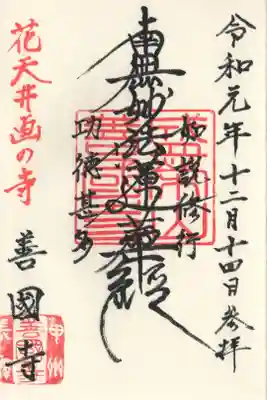 令和元年十二月十四日参拝
如説修行
南無妙法蓮華経
功徳甚多
花天井画の寺
善國寺